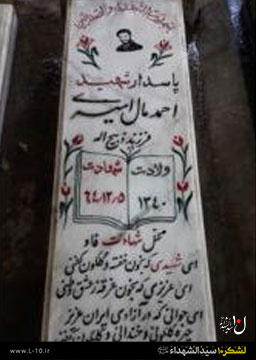 پاسدار شهید
احمد مال امیری
فرزند ذبیح اله
ولادت
۱۳۴۰
شهادت
۶۴/۱۲/۵
محل شهادت فاو
ای شهیدی که بخون خفته و گلگون کفنی
ای عزیزی که بخون غرقه
ای جوانی که در آزادی ایران عزیز
لشکر۱۰ سیدالشهداء
www.L-10.ir